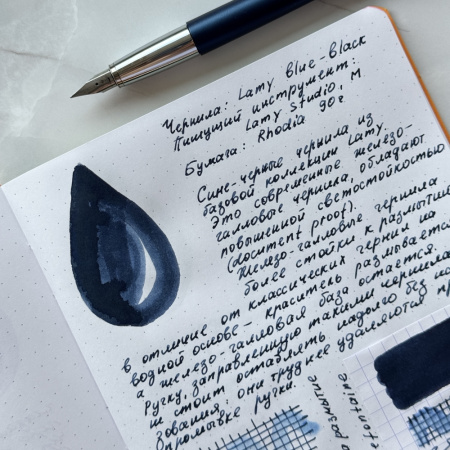 Чернила: Lamy blue-black
Пишущий инструмент:
Lamy Studio, M
Бумага: Rhodia 90г
Сине-черные чернила из
базовой коллекции Lamy.
Это современные железо-
галловые чернила, обладают
повышенной светостойкостью
(document proof).
Железо-галловые чернила
более стойки к размытию
в отличие от классических чернил на
водной основе - краситель размывается,
а железо-галловая база остается.
Ручку, заправленную такими чернилами
не стоит оставлять надолго без
зования: они труднее удаляются
промывке ручки.
размытие